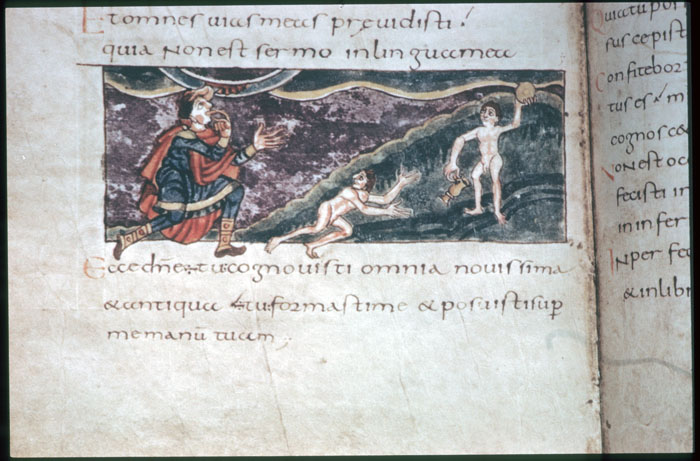 Etomnes uias meas preuidisti:
quia Nonest sermo inlinguamea
Ecce dn̄e tu cognouisti omnia nouissima
&antiqua tu formastime &posuistisup
memanū tuam
Quiatupos
suscepist
Confitebor
tuses: m
cognosca
Nonestoc
fecisti in
ininfer
Inperfec
&inlibr